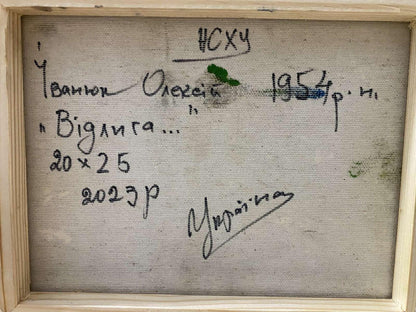 НСХУ
Іванюк Олексій 1954 р.н.
"Відлига..."
20×25
2023р
Україна